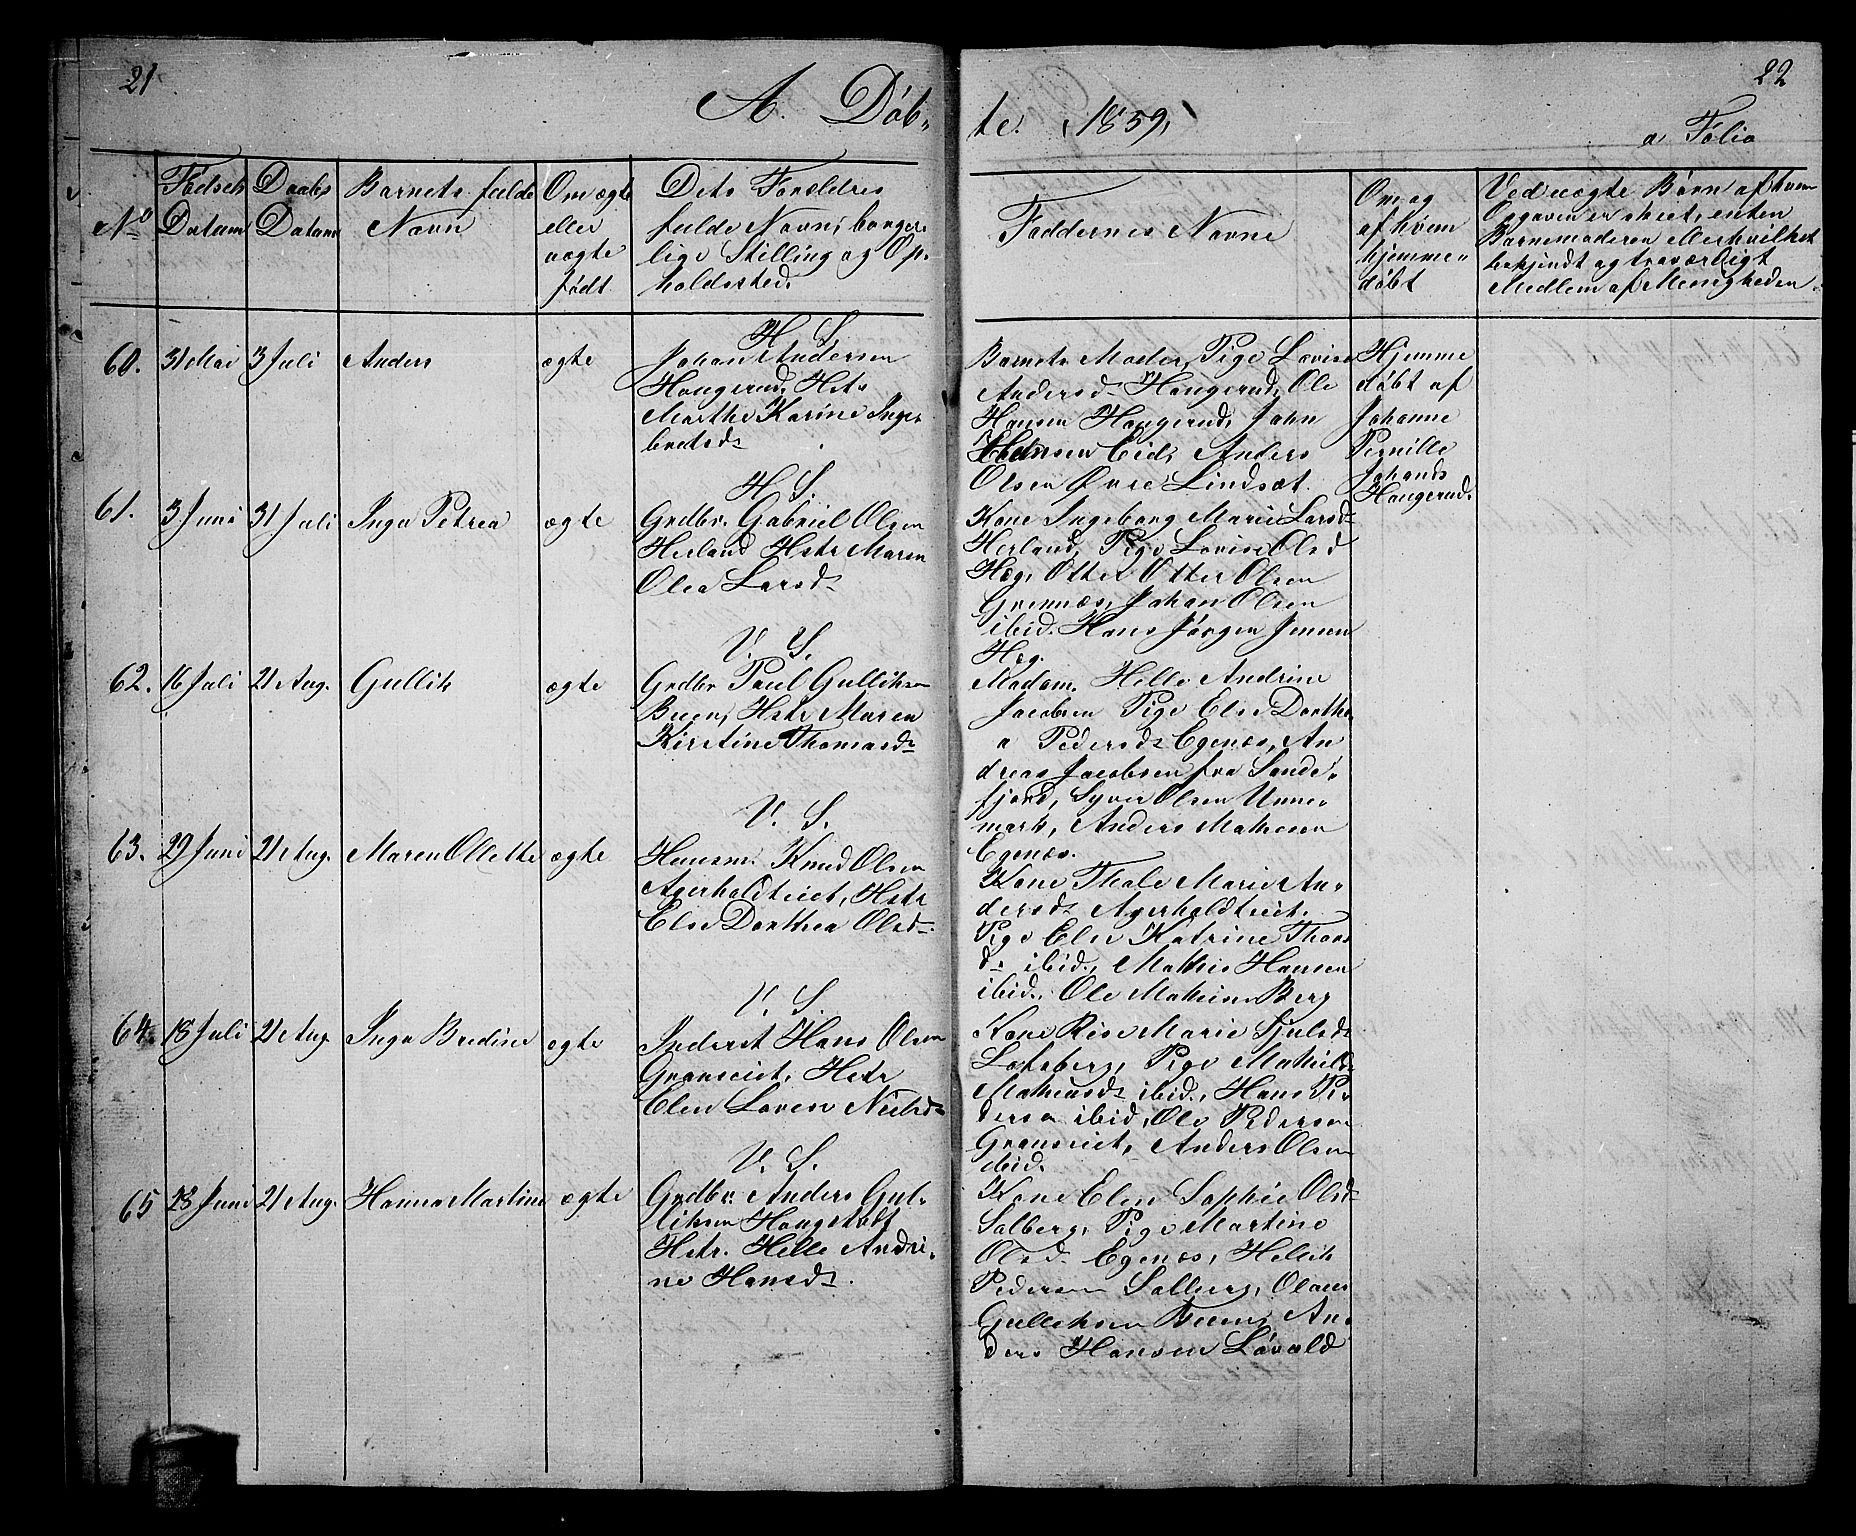 21
22
A. Døb-
te. 1859.
a Folio
No
Fødsels
Datum
Daabs
Datum
Barnets fulde
Navn
Om ægte
eller
uægte
født
Dets Forældres
fulde Navn, borger-
lige Stilling og Op-
holdssted.
Faddernes Navne
Om og
af hvem
hjemme-
døbt
Ved uægte Børn af hvem
Opgaven er skeet, enten
Barnemoderen eller hvilket
bekjendt og troværdigt
Medlem af Menigheden.
60. 31 Mai 3 Juli Anders ægte
H. S.
Johan Andersen
Haugerud, Hstr
Marthe Karine Inge-
bretsd.
Barnets Moder, Pige Lovise
Andersd. Haugerud, Ole
Hansen Haugerud, John
Hansen Eid, Anders
Olsen Øvre Lindsæt.
Hjemme
døbt af
Johanne
Pernille
Johansd
Haugerud.
61. 3 Juni 31 Juli Inga Petrea ægte
H. S.
Grdbr. Gabriel Olsen
Herland Hstr Maren
Olea Larsd.
Kone Ingeborg Marie Larsd
Herland, Pige Lovise Olsd
Hæg, Otter Otter Olsen
Grennæs, Johan Olsen
ibid. Hans Jørgen Jensen
Hæg.
62. 16 Juli 21 Aug. Gullik ægte
V. S.
Grdbr Paul Gulliksen
Bueen, Hstr Maren
Kirstine Thomasd.
Madam. Helle Andrine
Jacobsen Pige Else Dorthe
a Pedersd. Egenæs, An
dreas Jacobsen fra Sande-
fjord, Syver Olsen Unne-
mark, Anders Mathesen
Egenæs.
63. 29 Juni 21 Aug. Maren Ollette ægte
V. S.
Huusm. Knud Olsen
Agerholdteiet, Hstr
Else Dorthea Olsd.
Kone Thale Marie An-
dersd. Agerholdteiet.
Pige Else Katrine Thors
d. ibid., Mathis Hansen
ibid., Ole Mathisen Berg
64. 18 Juli 21 Aug. Inga Bredine ægte
V. S.
Inderst Hans Olsen
Granseiet, Hstr
Elen Loven Nielsd.
Kone Rise Marie Juulsd.
Lotsberg, Pige Mathild
Matheusd. ibid., Hans Pe-
dersen ibid, Ole Pedersen
Granseiet, Anders Olsen
ibid.
65 28 Juni 21 Aug. Hanna Martine ægte
V. S.
Grdbr. Anders Gul-
liksen Haugstoft
Hstr. Helle Andri-
ne Hansd.
Kone Elen Sophie Olsd
Solberg, Pige Martine
Olsd. Egenæs, Hellik
Pedersen Solberg, Olaus
Gulleksen Bueen, An-
ders Hansen Løvold